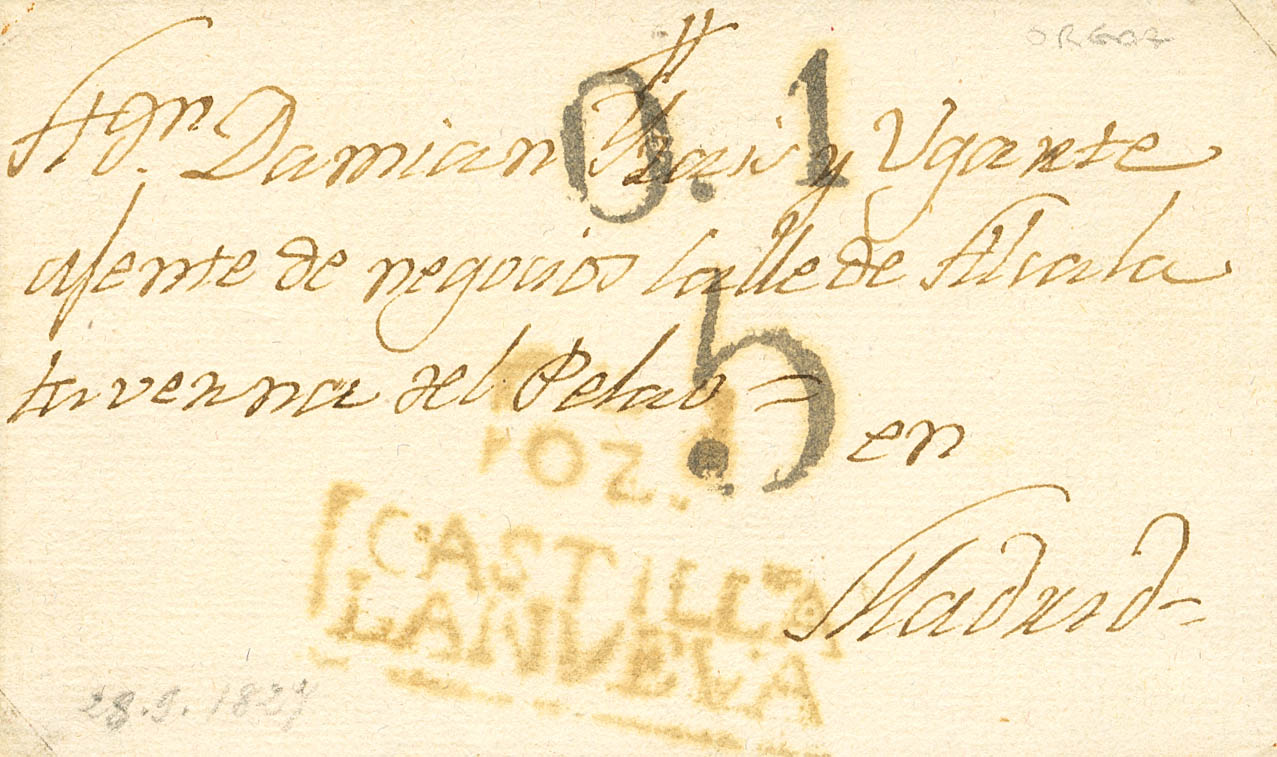 ORGAZ
0.1
A Dn. Damian y Ugarte
Ajente de negocios Calle de Alcala
taverna del Pelao =
5
en
Madrid
OZ.
CASTILLA
LANUEVA
23.9.1827